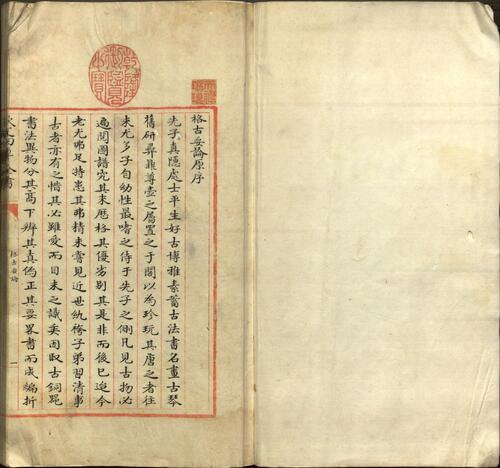 格古要論原序
先子真隱處士平生好古博雅素蓄古法書名畫古琴
舊研彛鼎尊壺之屬置之于閣以為珍玩其售之者往
來尤多予自幼性最嗜之侍于先子之側凡見古物必
遍閱圖譜究其来歴格其優劣别其是非而後已迨今
老尤弗怠特患其弗精耳嘗見近世紈袴子弟習清事
古者亦有之惜其心雖愛而目未之識矣因取古銅器
書法異物分其髙下辨其真偽正其要畧書而成編析
欽定四庫全書
格古要論
一
乾隆御覽之寶